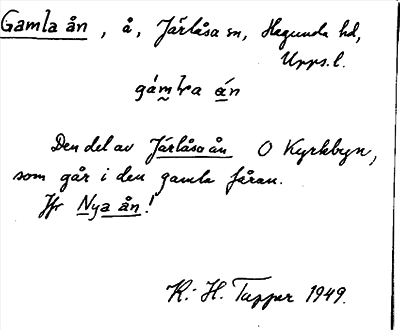 Gamla ån, å, Järlåsa sn, Hagunda hd,
Upps. l.
gám̬la án
Den del av Järlåsaån O Kyrkbyn,
som går i den gamla fåran.
Jfr Nya ån!
K.-H. Tapper 1949.